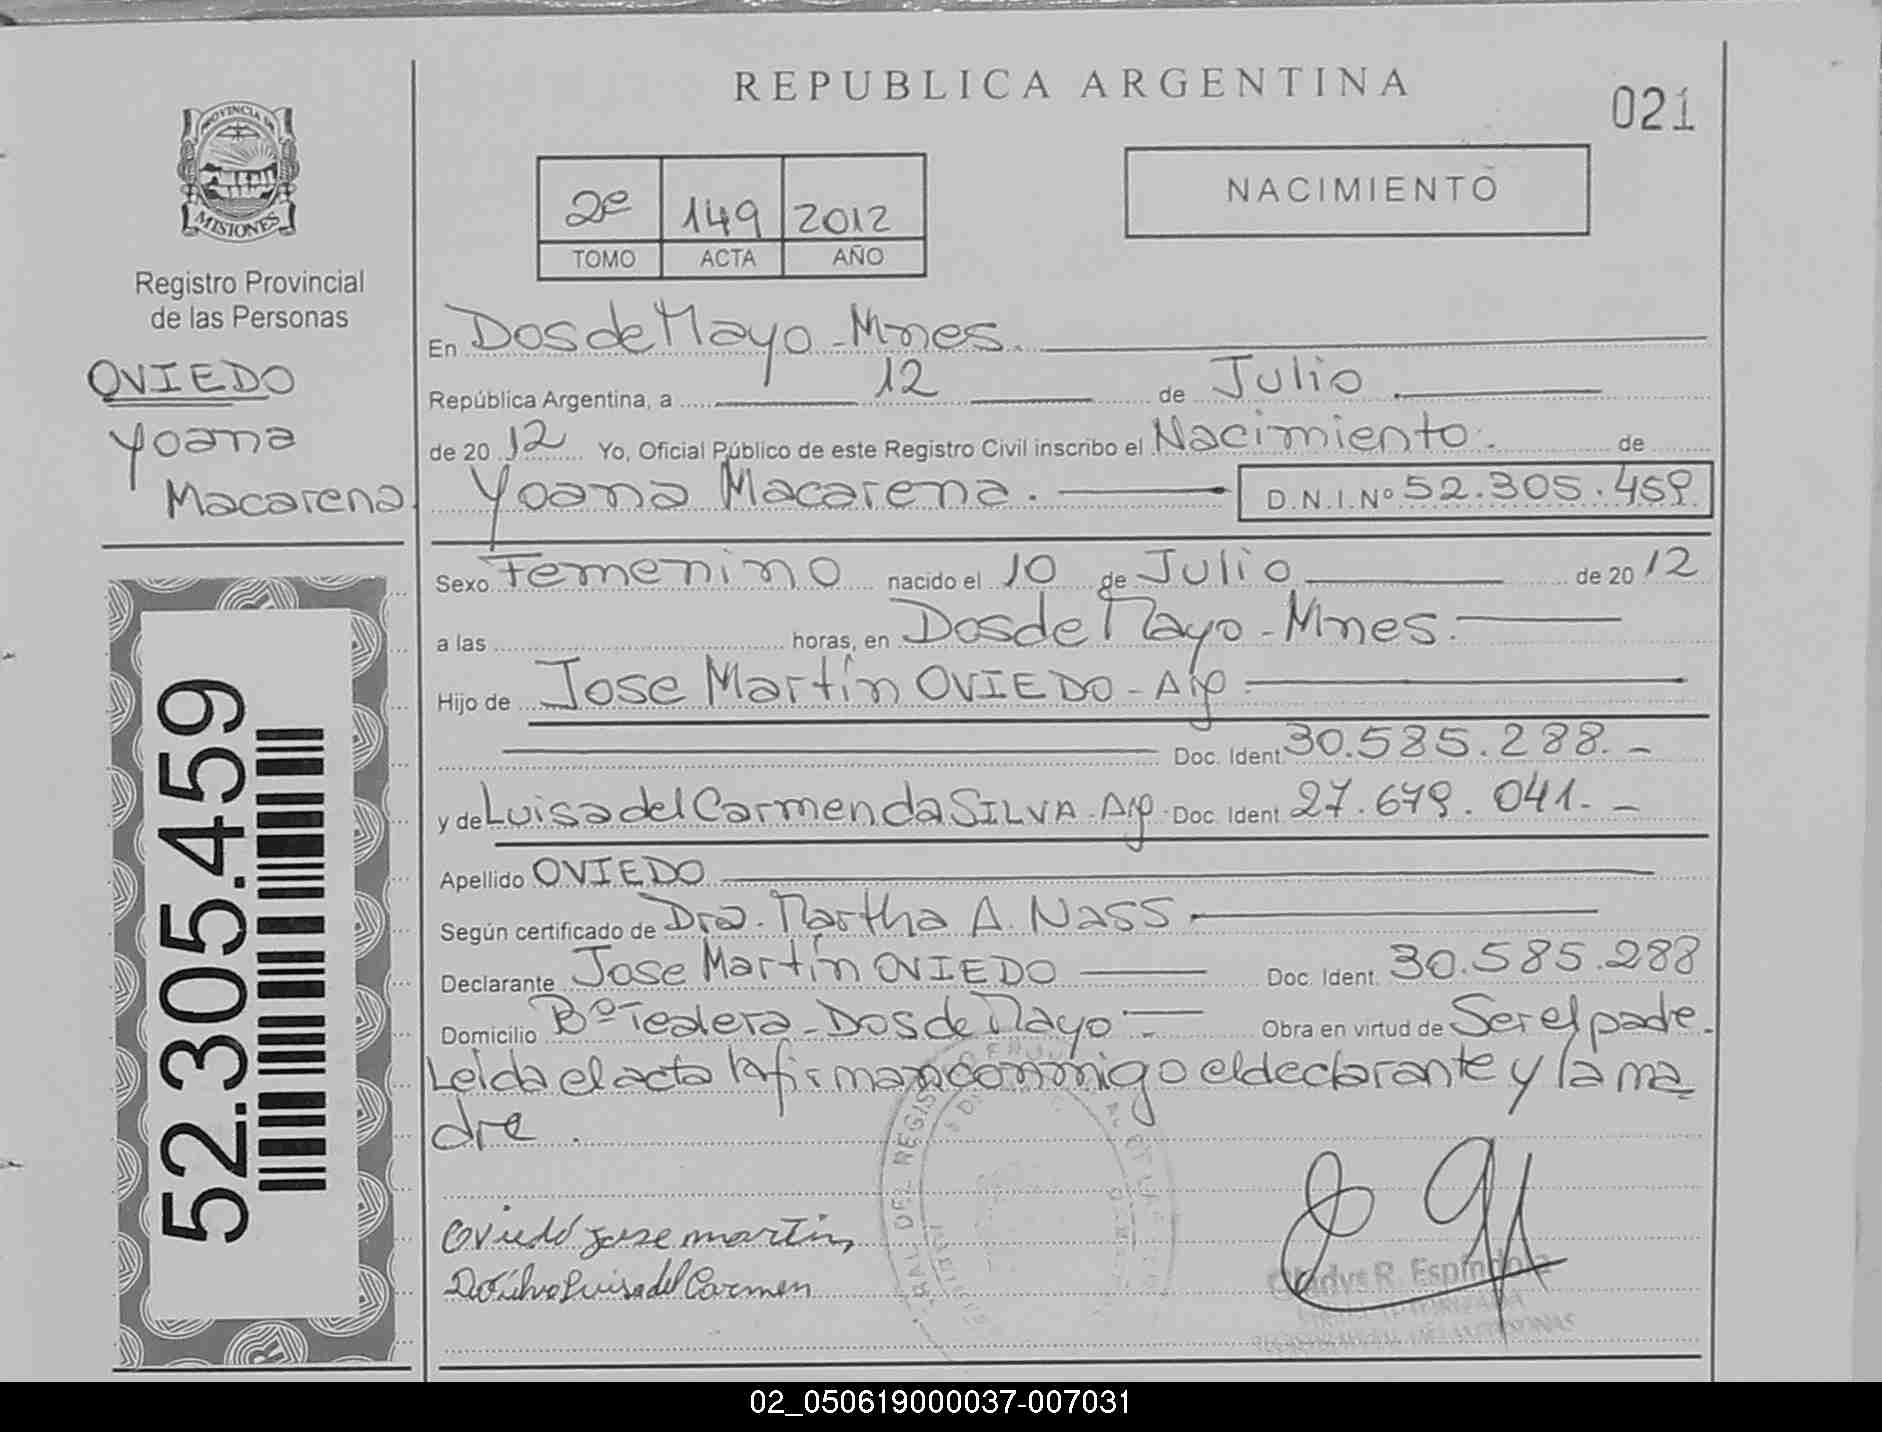 REPUBLICA ARGENTINA
021
PROVINCIA DE
MISIONES
Registro Provincial
de las Personas
OVIEDO
Yoana
Macarena
52.305.459
NACIMIENTO
2º 149 2012
TOMO ACTA AÑO
En Dos de Mayo - Mnes.
República Argentina, a 12 de Julio
de 2012 Yo, Oficial Público de este Registro Civil inscribo el Nacimiento. de
Yoana Macarena. D.N.I.Nº 52.305.459
Sexo Femenino nacido el 10 de Julio de 2012
a las horas, en Dos de Mayo - Mnes.
Hijo de Jose Martín OVIEDO - Arg
Doc. Ident. 30.585.288. -
y de Luisa del Carmen da SILVA - Arg. Doc. Ident. 27.679.041. -
Apellido OVIEDO
Según certificado de Dra. Martha A. Nass
Declarante Jose Martín OVIEDO Doc. Ident. 30.585.288
Domicilio Bº Tealera - Dos de Mayo Obra en virtud de Ser el padre.
Leída el acta la firman conmigo el declarante y la ma
dre.
Oviedo jose martin
Luisa del Carmen
Gladys R. Espíndola
02_050619000037-007031